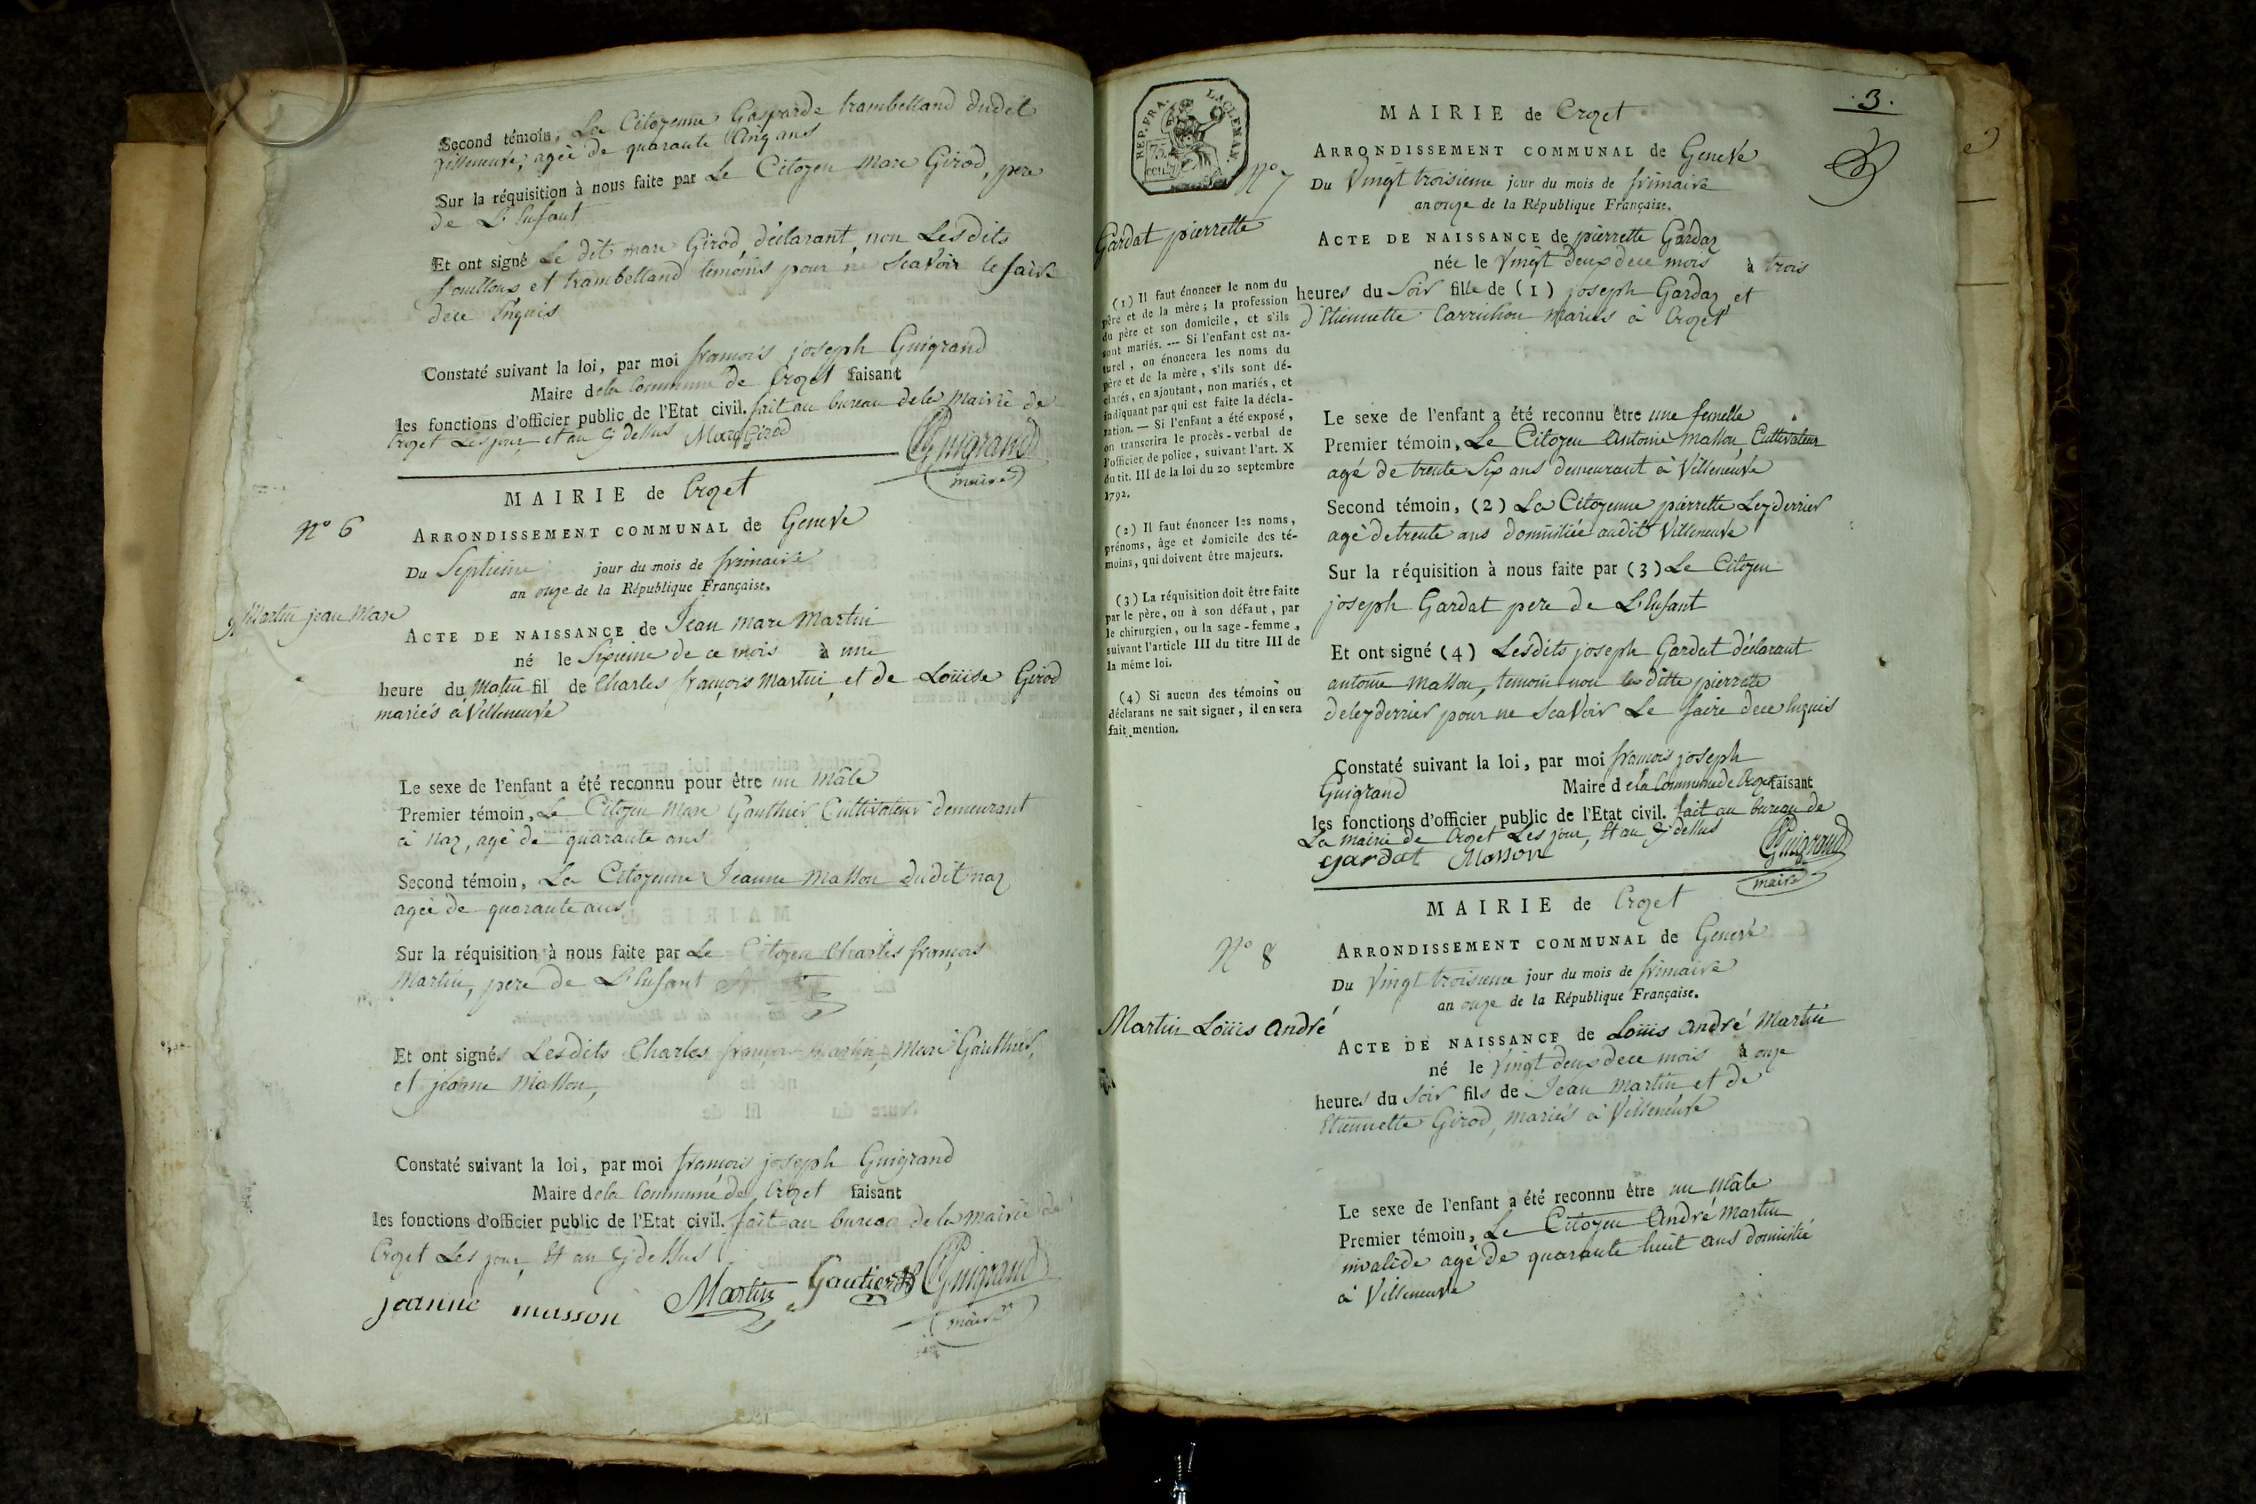 Second témoin, La Citoyenne Gasparde trambelland dudit
villeneuve, agée de quarante Cinq ans
Sur la réquisition à nous faite par Le Citoyen Marc Girod, pere
de L'Enfant
Et ont signé Le dit marc Girod, déclarant, non Lesdits
et trambelland témoins pour ne Scavoir le faire
dece Enquis
Constaté suivant la loi, par moi francois joseph Guigrand
Maire dela Commune de Crozet faisant
les fonctions d'officier public de l'Etat civil. fait au bureau dela Mairie de
Crozet Les jour, et an Cy dessus Marc Girod
Guigrand
maire
N° 6
MAIRIE de Crozet
ARRONDISSEMENT COMMUNAL de Geneve
Du Septieme jour du mois de frimaire
an onze de la République Française.
Martin jean Marc
ACTE DE NAISSANCE de Jean marc Martin
né le Sixieme de ce mois à une
heure du Matin fil de Charles françois Martin et de Louise Girod
mariés à Villeneuve
Le sexe de l'enfant a été reconnu pour être un Mâle
Premier témoin, Le Citoyen Marc Gauthier Cultivateur demeurant
à Naz, agé de quarante ans
Second témoin, La Citoyenne Jeanne Masson dudit naz
agée de quarante ans
Sur la réquisition à nous faite par Le Citoyen Charles françois
Martin, pere de L'Enfant
Et ont signés Lesdits Charles françois Martin, Marc Gauthier,
et jeanne Masson,
Constaté suivant la loi, par moi francois joseph Guigrand
Maire dela Commune de Crozet faisant
les fonctions d'officier public de l'Etat civil. fait au bureau dela mairie de
Crozet Les jour, Et an Cy dessus
jeanne masson Martin Gautier Guigrand
maire
3.
REP. FRA. 75. cent.
N° 7
MAIRIE de Crozet
ARRONDISSEMENT COMMUNAL de Geneve
Du Vingt troisieme jour du mois de frimaire
an onze de la République Française.
Gardat pierrette
ACTE DE NAISSANCE de pierrette Gardaz
née le Vingt deux dece mois à trois
heures du Soir fille de (1) joseph Gardaz et
d'Etiennette Carrichon Mariés à Crozet
(1) Il faut énoncer le nom du
père et de la mère; la profession
du père et son domicile, et s'ils
sont mariés. --- Si l'enfant est na-
turel, on énoncera les noms du
père et de la mère, s'ils sont dé-
clarés, en ajoutant, non mariés, et
indiquant par qui est faite la décla-
ration. — Si l'enfant a été exposé,
on transcrira le procès-verbal de
l'officier de police, suivant l'art. X
du tit. III de la loi du 20 septembre
1792.
(2) Il faut énoncer les noms,
prénoms, âge et domicile des té-
moins, qui doivent être majeurs.
(3) La réquisition doit être faite
par le père, ou à son défaut, par
le chirurgien, ou la sage-femme,
suivant l'article III du titre III de
la même loi.
(4) Si aucun des témoins ou
déclarans ne sait signer, il en sera
fait mention.
Le sexe de l'enfant a été reconnu être une femelle
Premier témoin, Le Citoyen Antoine Masson, Cultivateur
agé de trente Six ans demeurant à Villeneuve
Second témoin, (2) La Citoyenne pierrette Leyderrier
agé de trente ans domiciliée audit Villeneuve
Sur la réquisition à nous faite par (3) Le Citoyen
joseph Gardat pere de L'Enfant
Et ont signé (4) Lesdits joseph Gardat déclarant
antoine Masson, temoin non la ditte pierrette
deleyderrier pour ne Scavoir Le faire dece Enquis
Constaté suivant la loi, par moi francois joseph
Guigrand Maire dela Commune de Crozet faisant
les fonctions d'officier public de l'Etat civil. fait au bureau de
La mairie de Crozet Les jour, Et an Cy dessus
gardat Masson Guigrand
maire
N° 8
MAIRIE de Crozet
ARRONDISSEMENT COMMUNAL de Geneve
Du Vingt troisieme jour du mois de frimaire
an onze de la République Française.
Martin Louis André
ACTE DE NAISSANCE de Louis André Martin
né le Vingt deux dece mois à onze
heures du Soir fils de Jean Martin et de
Etiennette Girod, Mariés à Villeneuve
Le sexe de l'enfant a été reconnu être un Mâle
Premier témoin, Le Citoyen André Martin
invalide agé de quarante huit ans domicilié
à Villeneuve